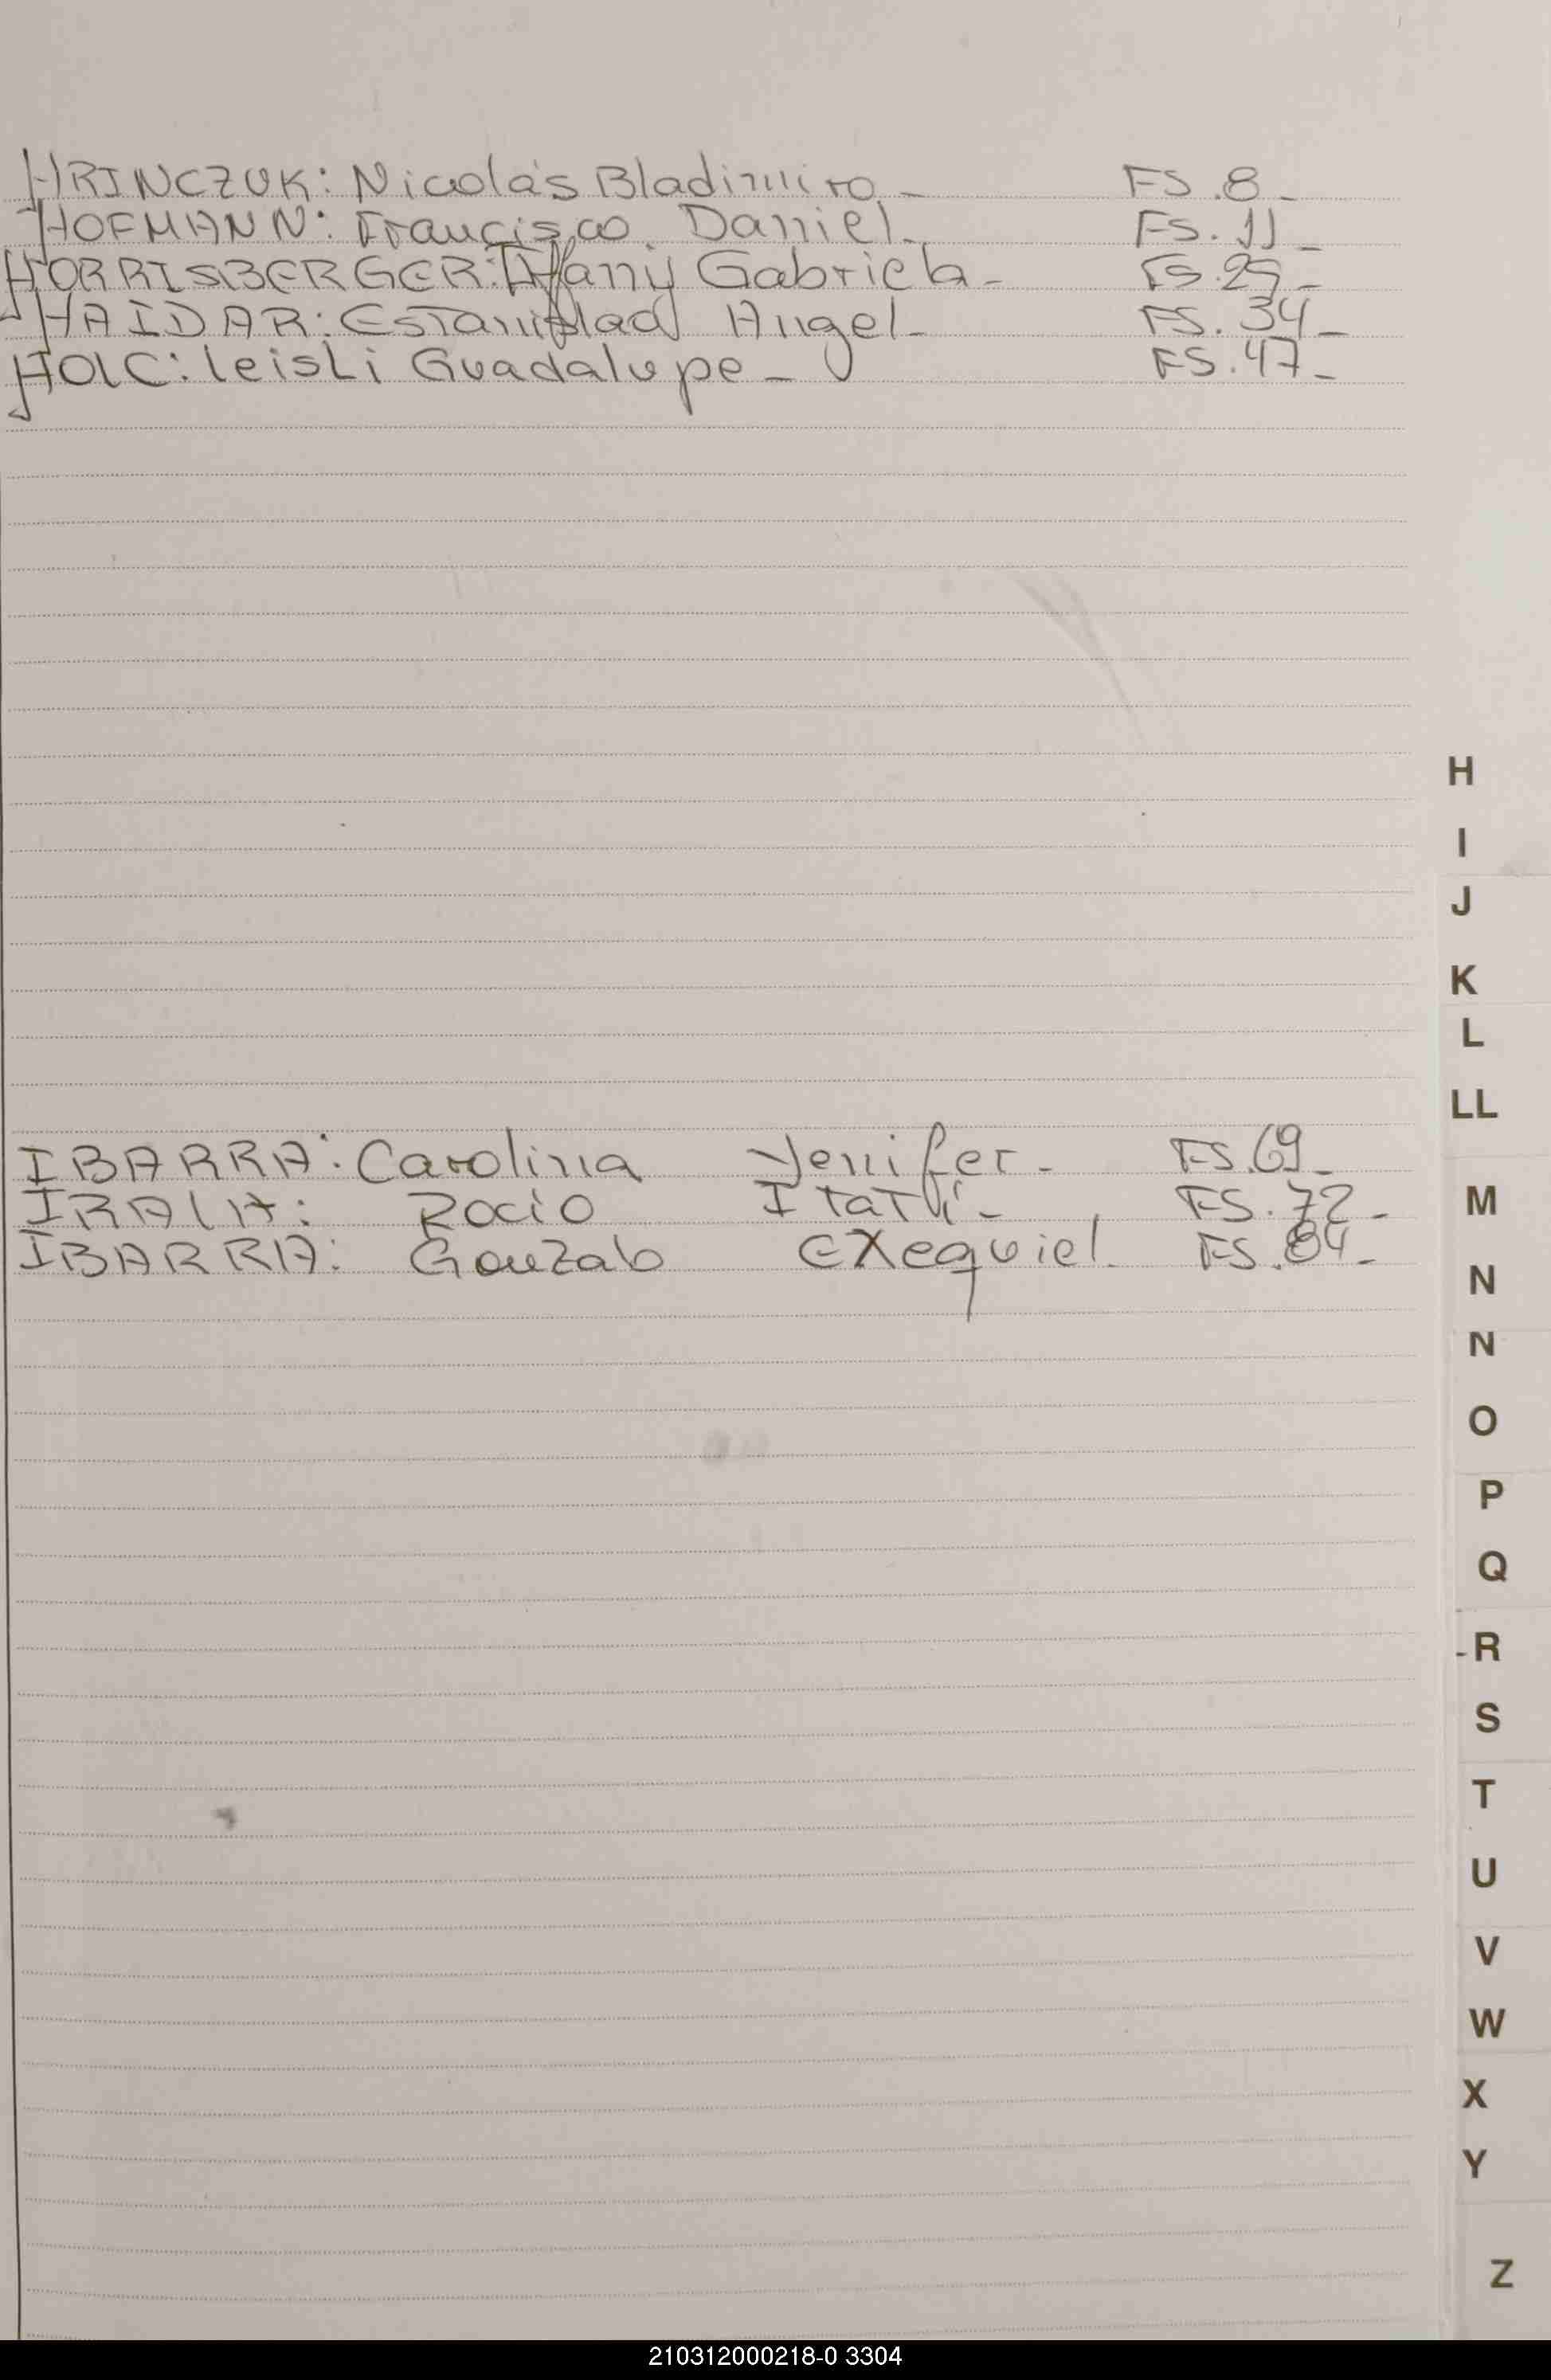 HRINCZUK: Nicolás Bladimiro - FS.8-
HOFMANN: Francisco Daniel - FS.11-
HORRISBERGER: Tiffany Gabriela - FS.29-
HAIDAR: Estanislad Angel - FS.34-
HOLC: Leisli Guadalupe - FS.47-
H
I
J
K
L
LL
IBARRA: Carolina Jenifer - FS.69-
IRALA: Rocio Itatí - FS.72-
IBARRA: Gonzalo Exequiel - FS.84-
M
N
N
O
P
Q
-R
S
T
U
V
W
X
Y
Z
210312000218-0 3304